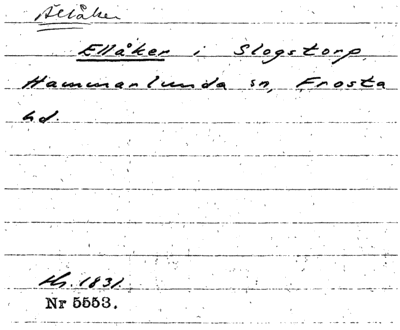 Ällåker
Ellåker i Slogstorp,
Hammarlunda sn, Frosta
hd.
Hs. 1831.
Nr 5553.